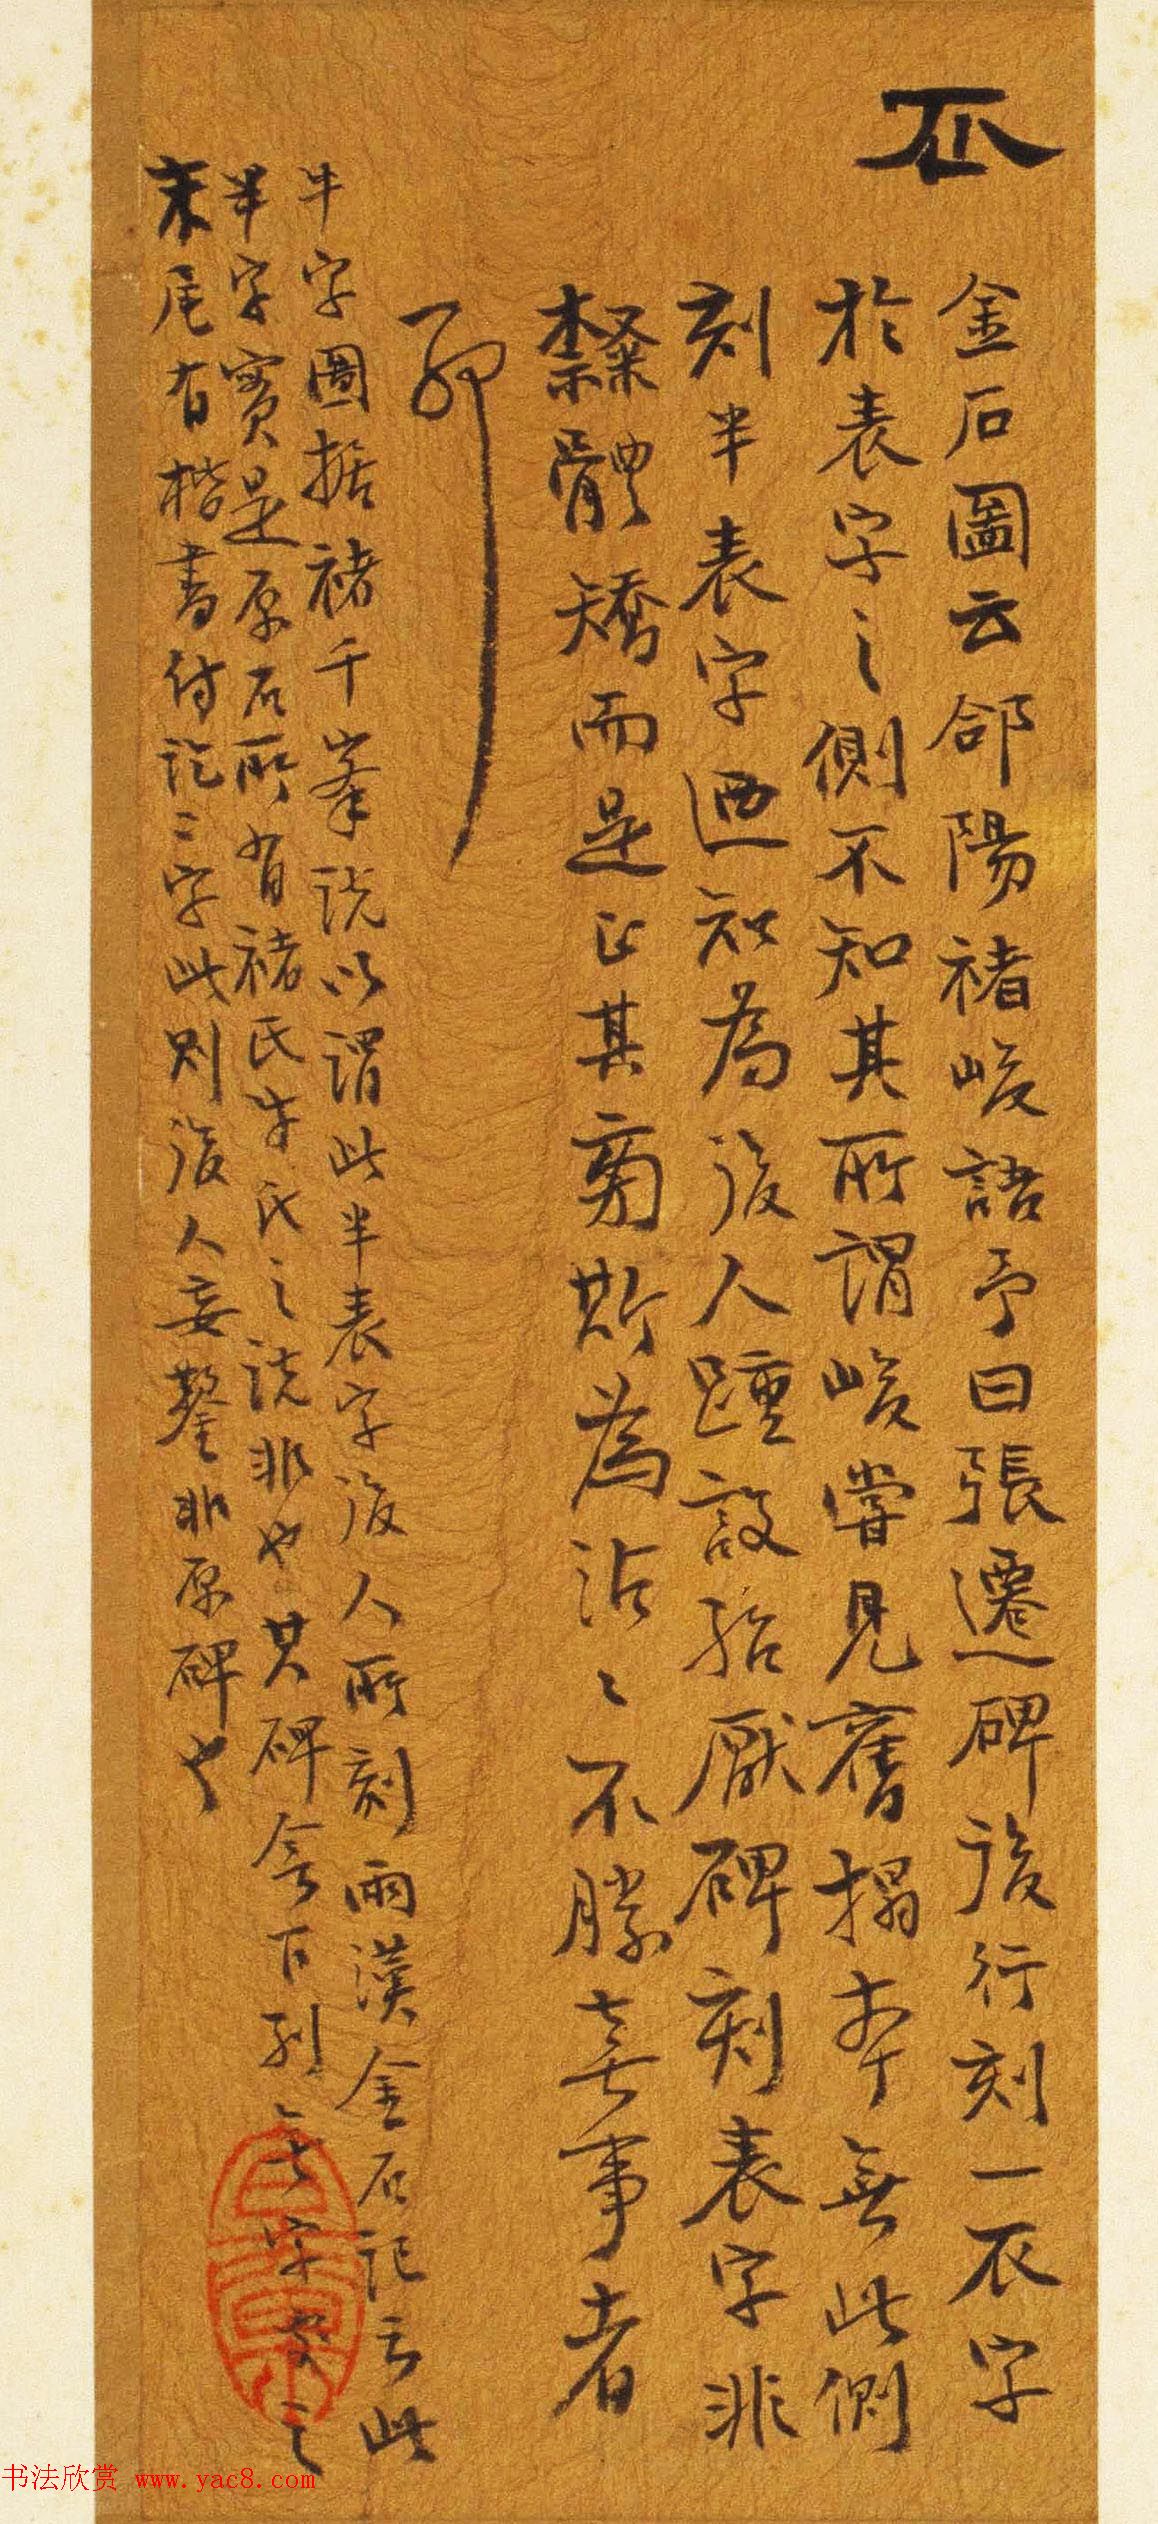 金石圖云郃陽褚峻語予曰張遷碑後行刻一衣字
於表字之側不知其所謂峻嘗見舊搨本無此側
刻半表字迺知為後人踵設殆厭碑刻表字非
隸體矯而是正其旁斯為沾沾不勝喜事者
耶
牛字圖據褚千峯說以謂此半表字後人所刻兩漢金石記云此
半字實是原石所有褚氏牛氏之說非也其碑側下刻字也之
末尾有楷書付訖二字此則後人妄鑿非原碑也
书法欣赏 www.yac8.com